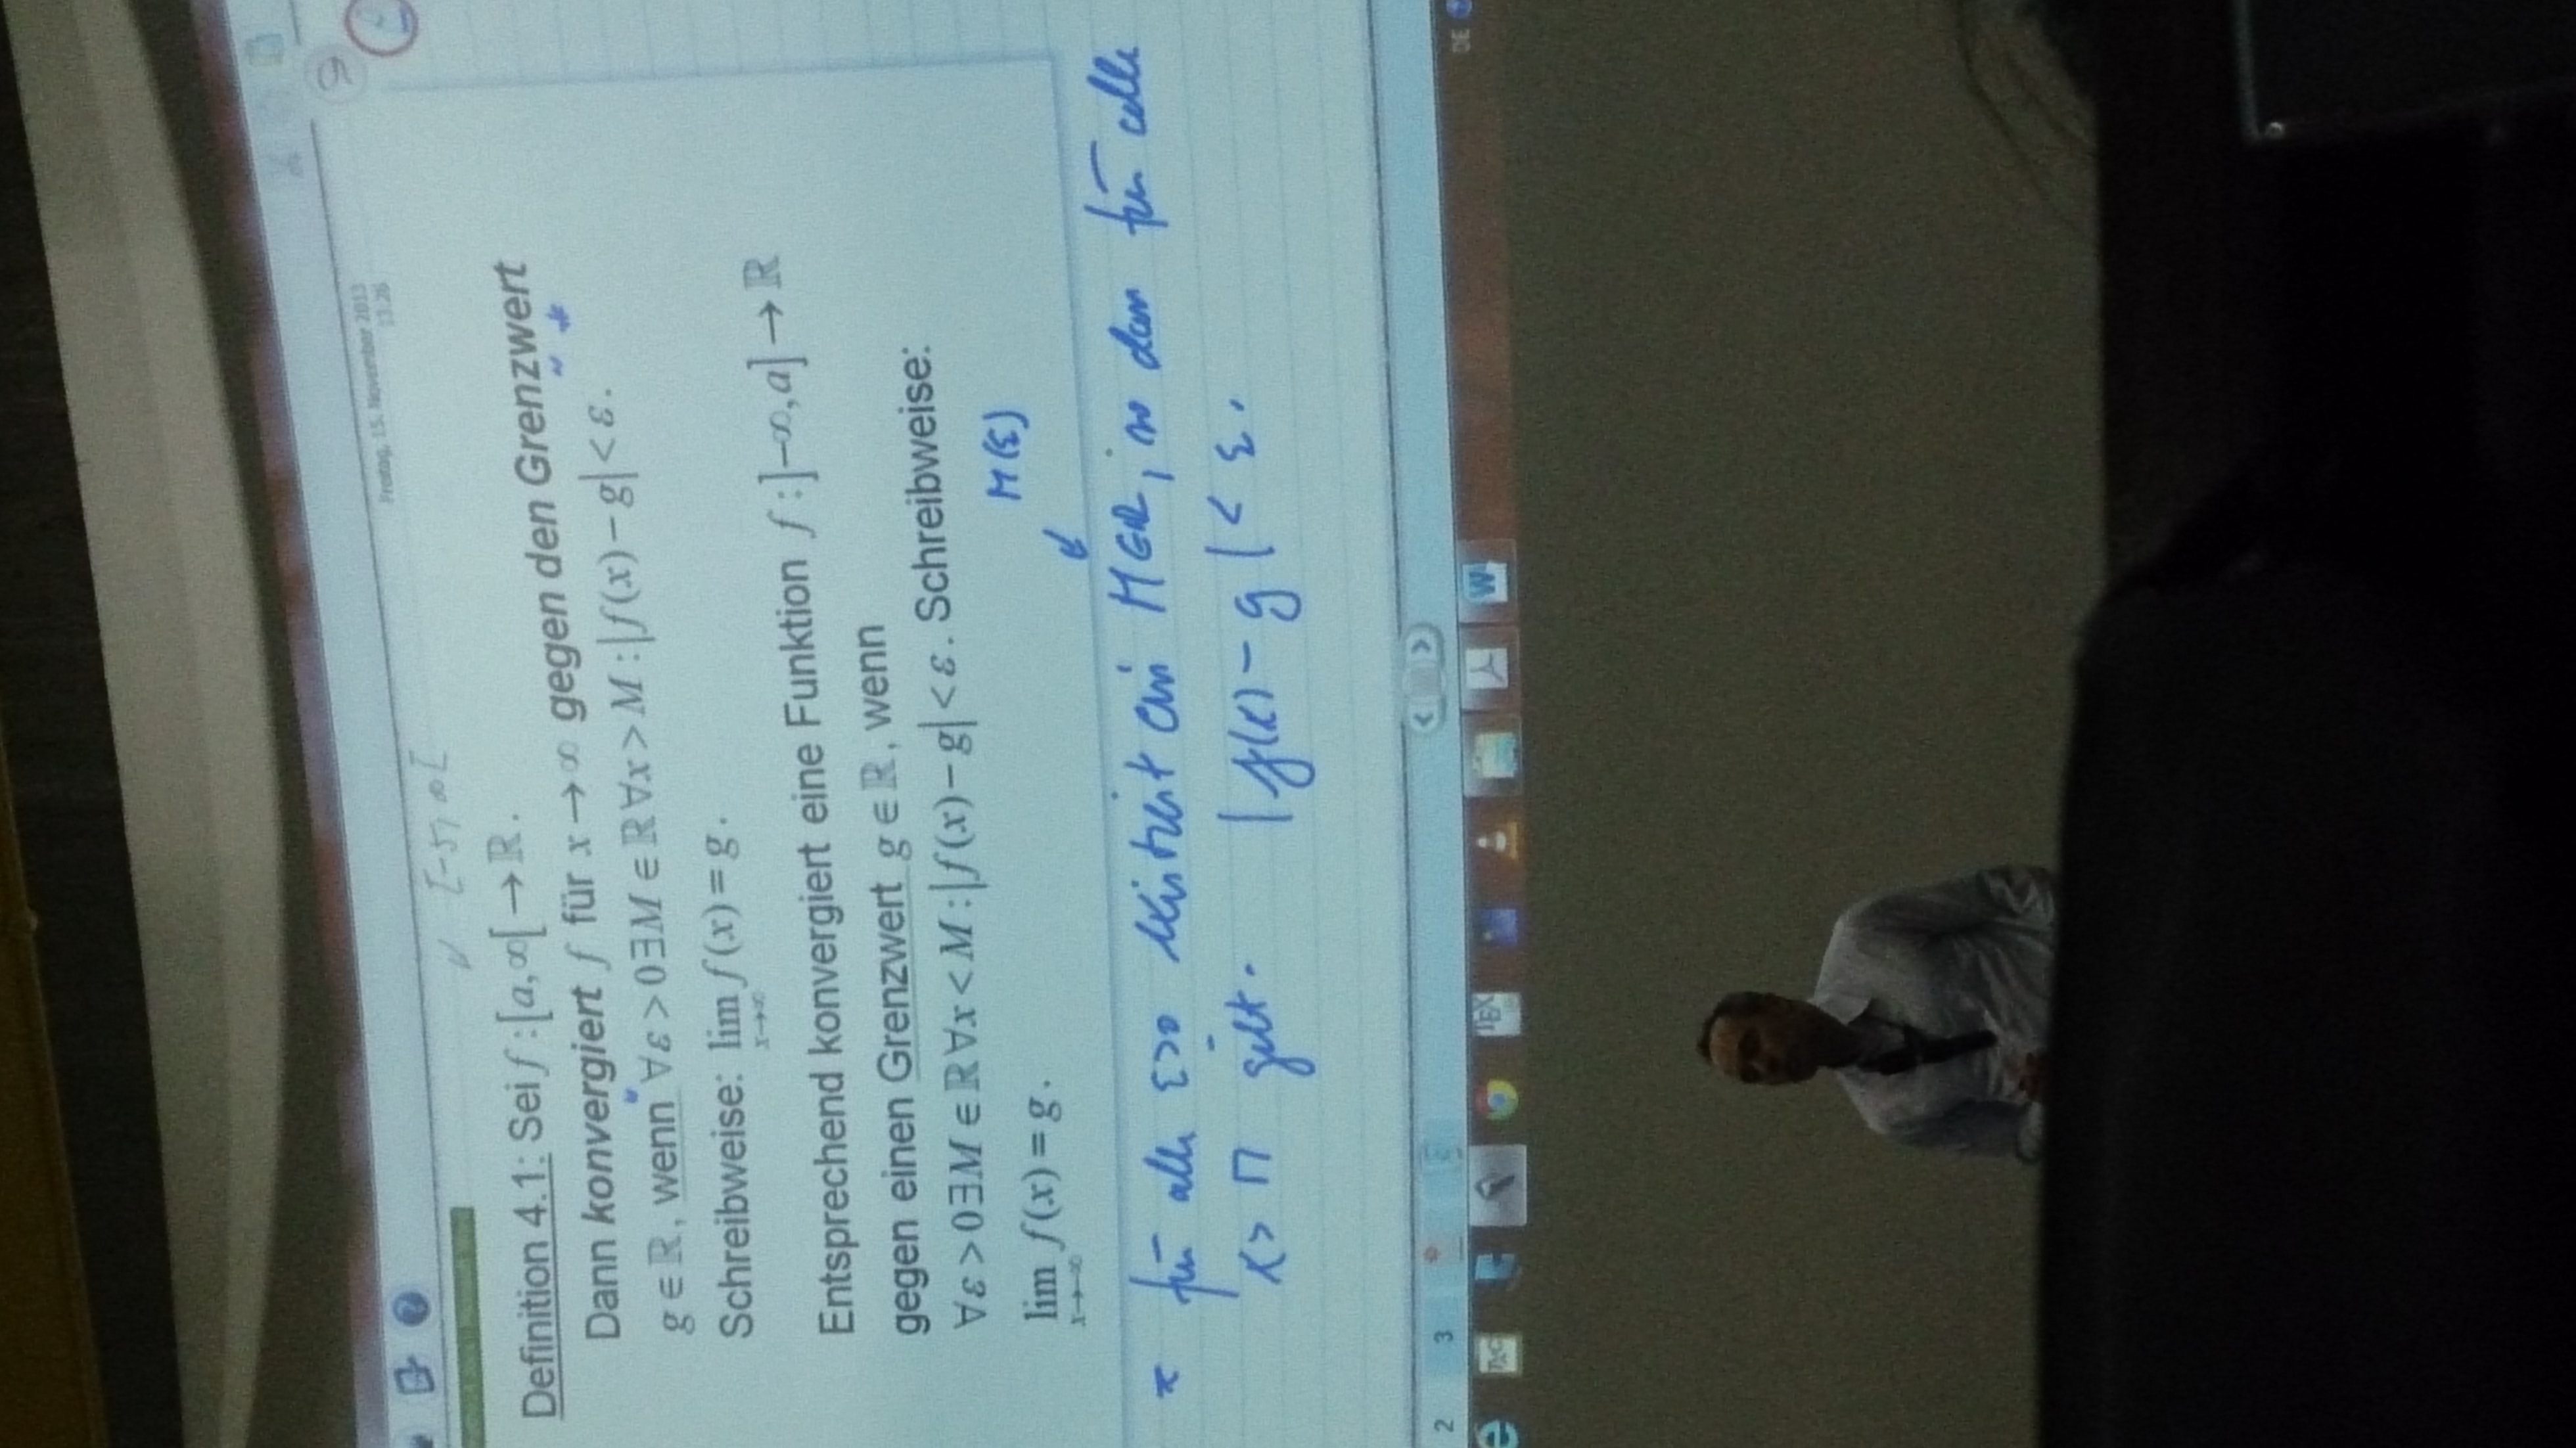 Freitag, 15. November 2013
13:26
[-5, ∞[
Definition 4.1: Sei f:[a,∞[→ℝ.
Dann konvergiert f für x→∞ gegen den Grenzwert
g∈ℝ, wenn ∀ε>0∃M∈ℝ∀x>M:|f(x)−g|<ε.
Schreibweise: lim f(x)=g.
x→∞
Entsprechend konvergiert eine Funktion f:]−∞,a]→ℝ
gegen einen Grenzwert g∈ℝ, wenn
∀ε>0∃M∈ℝ∀x<M:|f(x)−g|<ε. Schreibweise:
lim f(x)=g.
x→−∞
M(ε)
* für alle ε>0 existiert ein M∈ℝ, so dass für alle
x>M gilt. |f(x)−g|<ε.
2 3
DE
TXC TEX W